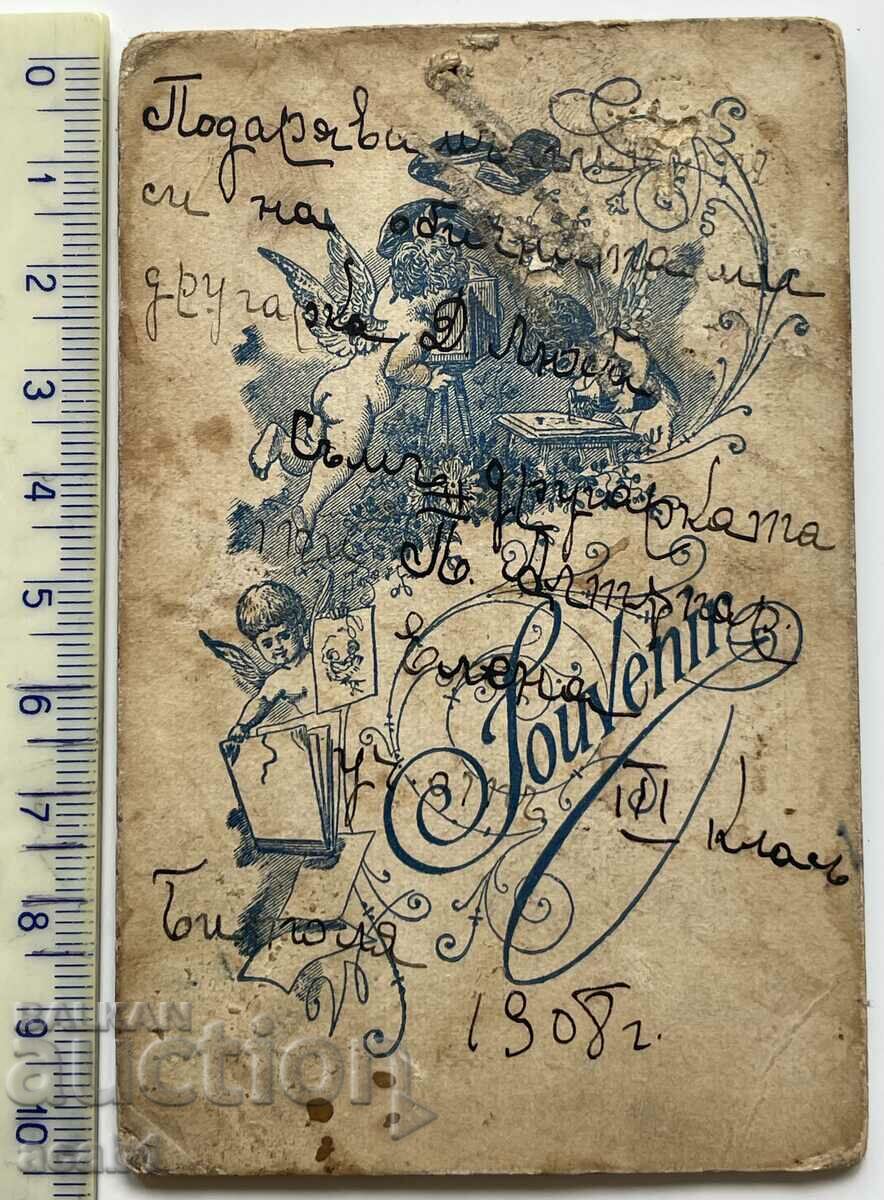 Подарява
си на обичната ми
другарка Д Люба
Съмъ другарката
ти П.
Елена
Souvenir
уч III класъ
Битоля
1908 г.
BALKAN
auction
0 1 2 3 4 5 6 7 8 9 10